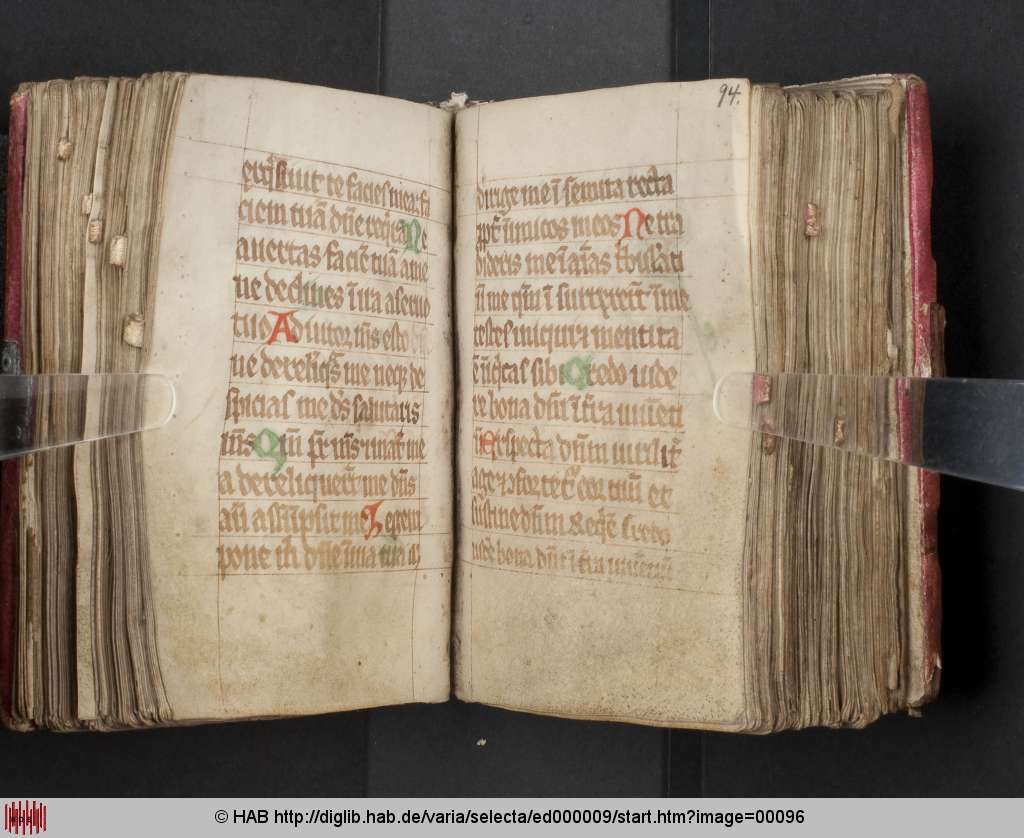 exq̄siuit te facies mea: fa
ciem tuā dn̄e req̇rā Ne
auertas faciē tuā a me
ne declines ī ira a seruo
tuo Adiutor m̄s esto
ne derelīq̄s me neq̄ de
spicias me ds̄ salutaris
m̄s Qm̄ pr̄ m̄s ⁊ mat̄ me
a dereliquer̄t me dn̄s
aū assūpsit me Legem
pone m̄ dn̄e ī uia tua ⁊
dirige me ī semita recta
ꝓpt̄ inimicos meos Ne tra
dideris me ī aīas t̄bulātiū
me qm̄ ī surrexer̄t ī me
testes iniqui ⁊ mentita
ē iniq̄tas sibi Credo uide
re bona dn̄i ī t̄ra uiuenti
ū Expecta dn̄m uirilit̄
age ⁊ ꝯfortet̄ cor tuū et
sustine dn̄m Req̄ē Credo
uidē bona dn̄i ī t̄ra uiuētiū
94.
© HAB http://diglib.hab.de/varia/selecta/ed000009/start.htm?image=00096